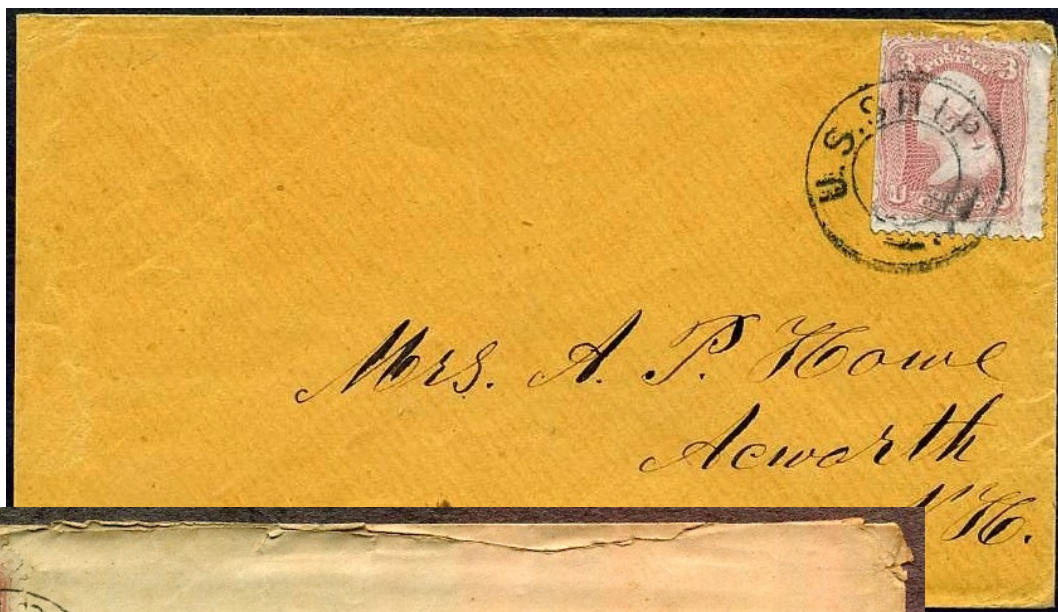 U.S. SHIP
3 U.S. POSTAGE 3
U
Mrs. A. P. Howe
Acworth
N.H.